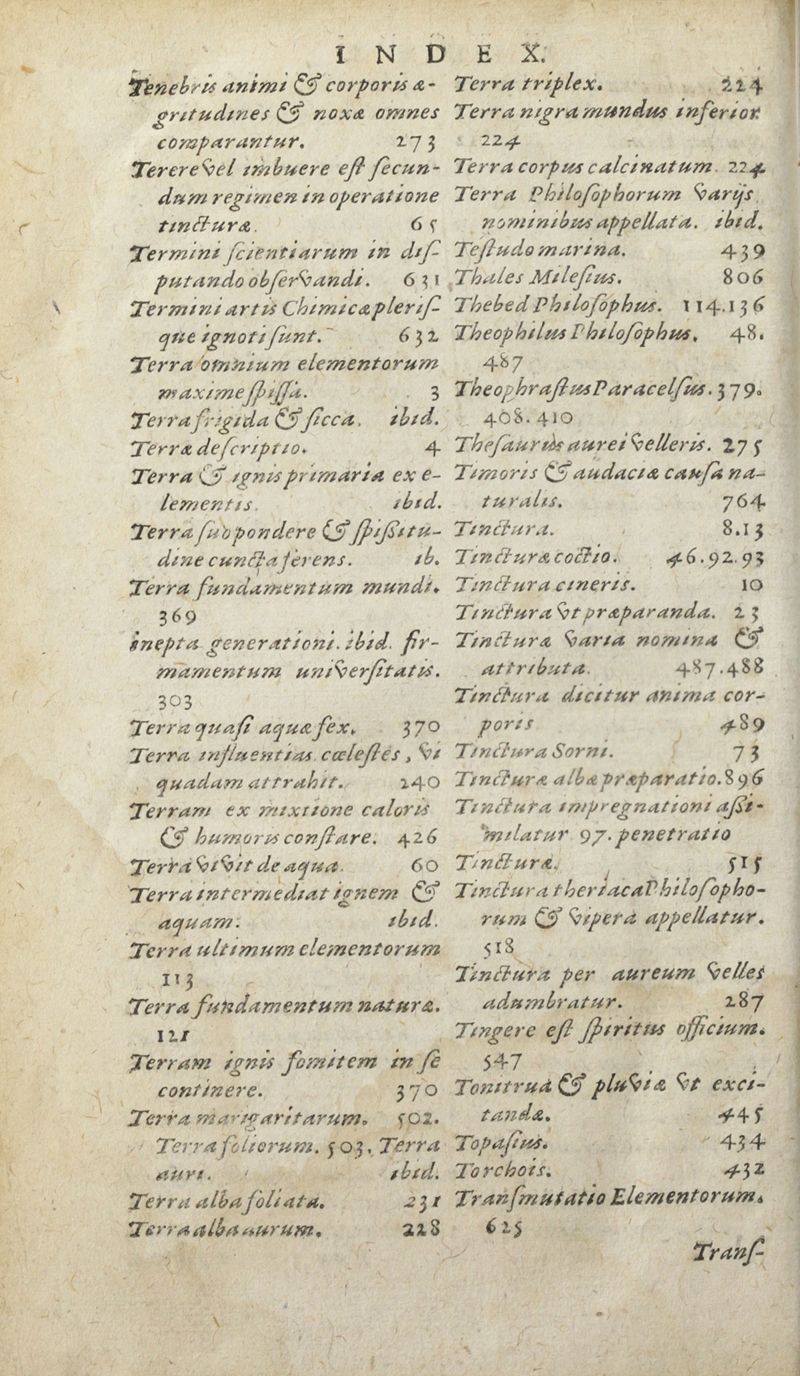 INDEX.
Tenebris animi & corporis æ-
gritudines & noxæ omnes
comparantur. 273
Terere vel imbuere est secun-
dum regimen in operatione
tincturæ. 65
Termini scientiarum in dis-
putando observandi. 631
Termini artis Chimicæ pleris-
que ignoti sunt. 632
Terra omnium elementorum
maxime spissa. 3
Terra frigida & sicca. ibid.
Terræ descriptio. 4
Terra & ignis primaria ex e-
lementis. ibid.
Terra suo pondere & spissitu-
dine cuncta ferens. ib.
Terra fundamentum mundi.
369
inepta generationi. ibid. fir-
mamentum universitatis.
303
Terra quasi aquæ fex. 370
Terra influentias cœlestes, vi
quadam attrahit. 240
Terram ex mixtione caloris
& humoris constare. 426
Terra vivit de aqua. 60
Terra intermediat ignem &
aquam. ibid.
Terra ultimum elementorum
113
Terra fundamentum naturæ.
121
Terram ignis fomitem in se
continere. 370
Terra margaritarum. 502.
Terra foliorum. 503. Terra
auri. ibid.
Terra alba foliata. 231
Terra alba aurum. 228
Terra triplex. 224
Terra nigra mundus inferior
224
Terra corpus calcinatum. 224.
Terra Philosophorum varijs
nominibus appellata. ibid.
Testudo marina. 439
Thales Milesius. 806
Thebed Philosophus. 114.136
Theophilus Philosophus. 48.
487
Theophrastus Paracelsus. 379.
408. 410
Thesaurus aurei velleris. 275
Timoris & audaciæ causa na-
turalis. 764
Tinctura. 8.13
Tincturæ coctio. 46.92.93
Tinctura cineris. 10
Tinctura vt præparanda. 23
Tinctura varia nomina &
attributa. 487.488
Tinctura dicitur anima cor-
poris 489
Tinctura Sorni. 73
Tincturæ albæ præparatio. 896
Tinctura impregnationi assi-
milatur 97. penetratio
Tincturæ. 515
Tinctura theriaca Philosopho-
rum & vipera appellatur.
518
Tinctura per aureum velles
adumbratur. 287
Tingere est spiritus officium.
547
Tonitrua & pluvia vt exci-
tanda. 445
Topasius. 434
Torchois. 432
Transmutatio Elementorum.
625
Trans-